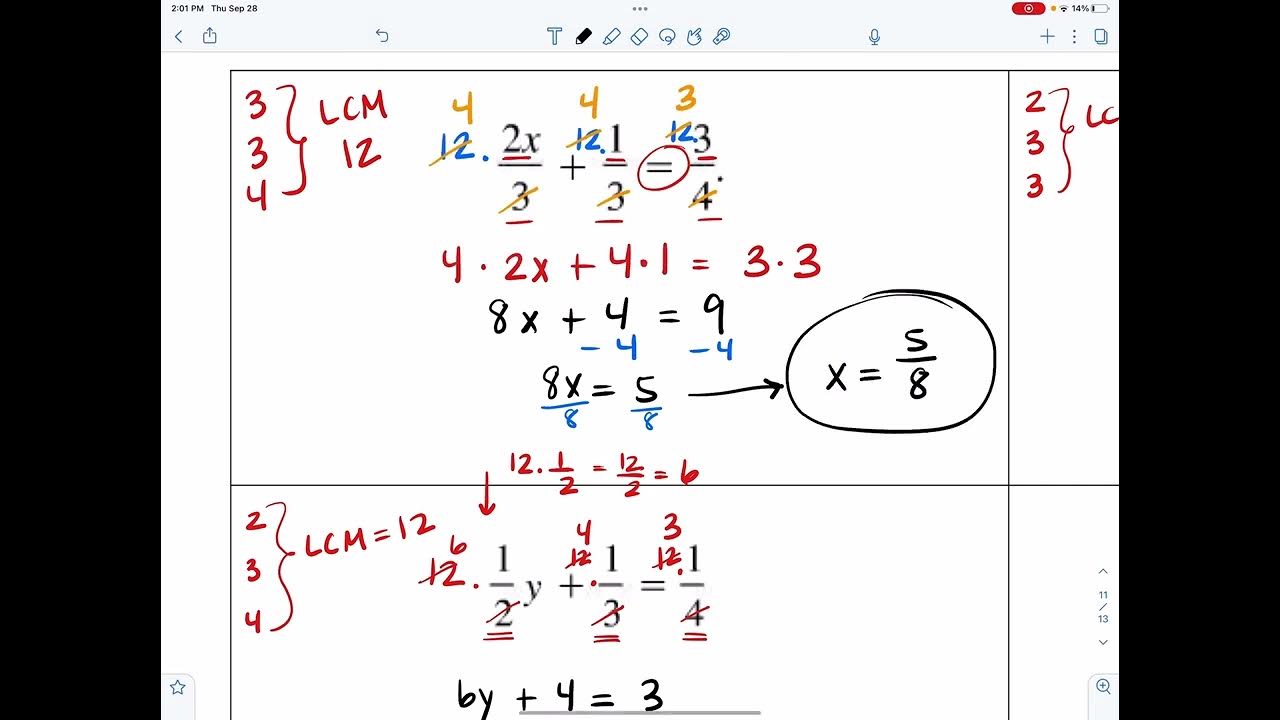 2:01 PM Thu Sep 28
14%
3
3
4
LCM
12
4 4 3
12 · 2x/3 + 12 · 1/3 = 12 · 3/4.
4 · 2x + 4 · 1 = 3 · 3
8x + 4 = 9
- 4 - 4
8x/8 = 5/8
x = 5/8
2
3
3
LC
12 · 1/2 = 12/2 = 6
2
3
4
LCM = 12
6 4 3
12 · 1/2 y + 12 · 1/3 = 12 · 1/4
6y + 4 = 3
11
/
13